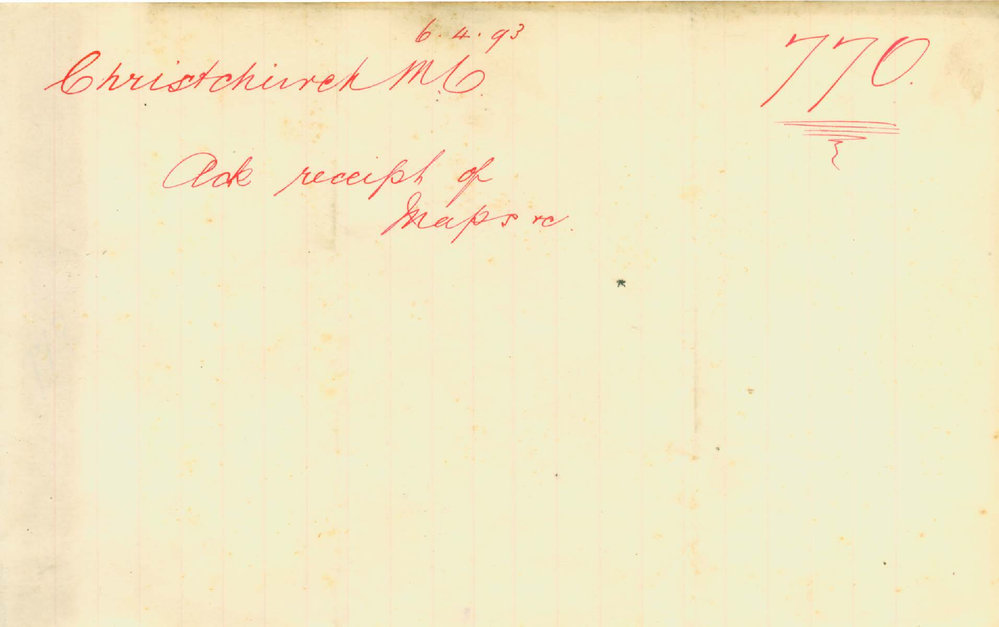 6.4.93
Christchurch M C
770.
Ack receipt of
Maps &c.